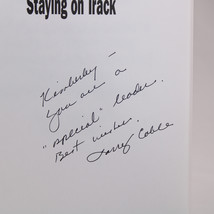 Staying on Track
Kimberley –
You are a
"special" leader.
Best wishes,
Larry Coble